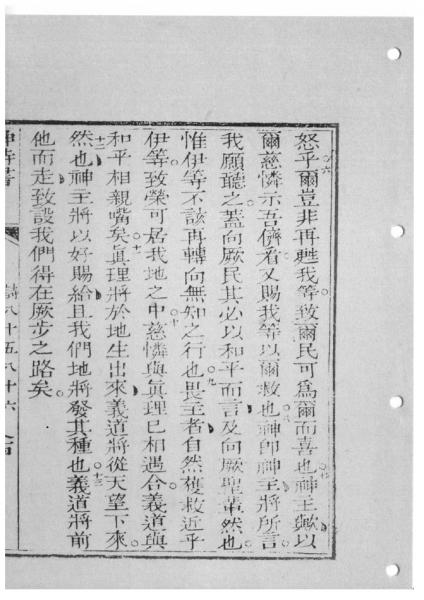 怒乎六爾豈非再甦我等致爾民可為爾而喜也七神主歟以
爾慈憐示吾儕看又賜我等以爾救也八神即神主將所言
我願聽之蓋向厥民其必以和平而言及向厥聖輩然也
惟伊等不該再轉向無知之行也九畏主者自然獲救近乎
伊等致榮可居我地之中十慈憐與眞理已相遇合義道與
和平相親嘴矣十一眞理將於地生出來義道將從天望下來
然也十二神主將以好賜給且我們地將發其種也十三義道將前
他而走致設我們得在厥步之路矣
神詩書 詩八十五八十六